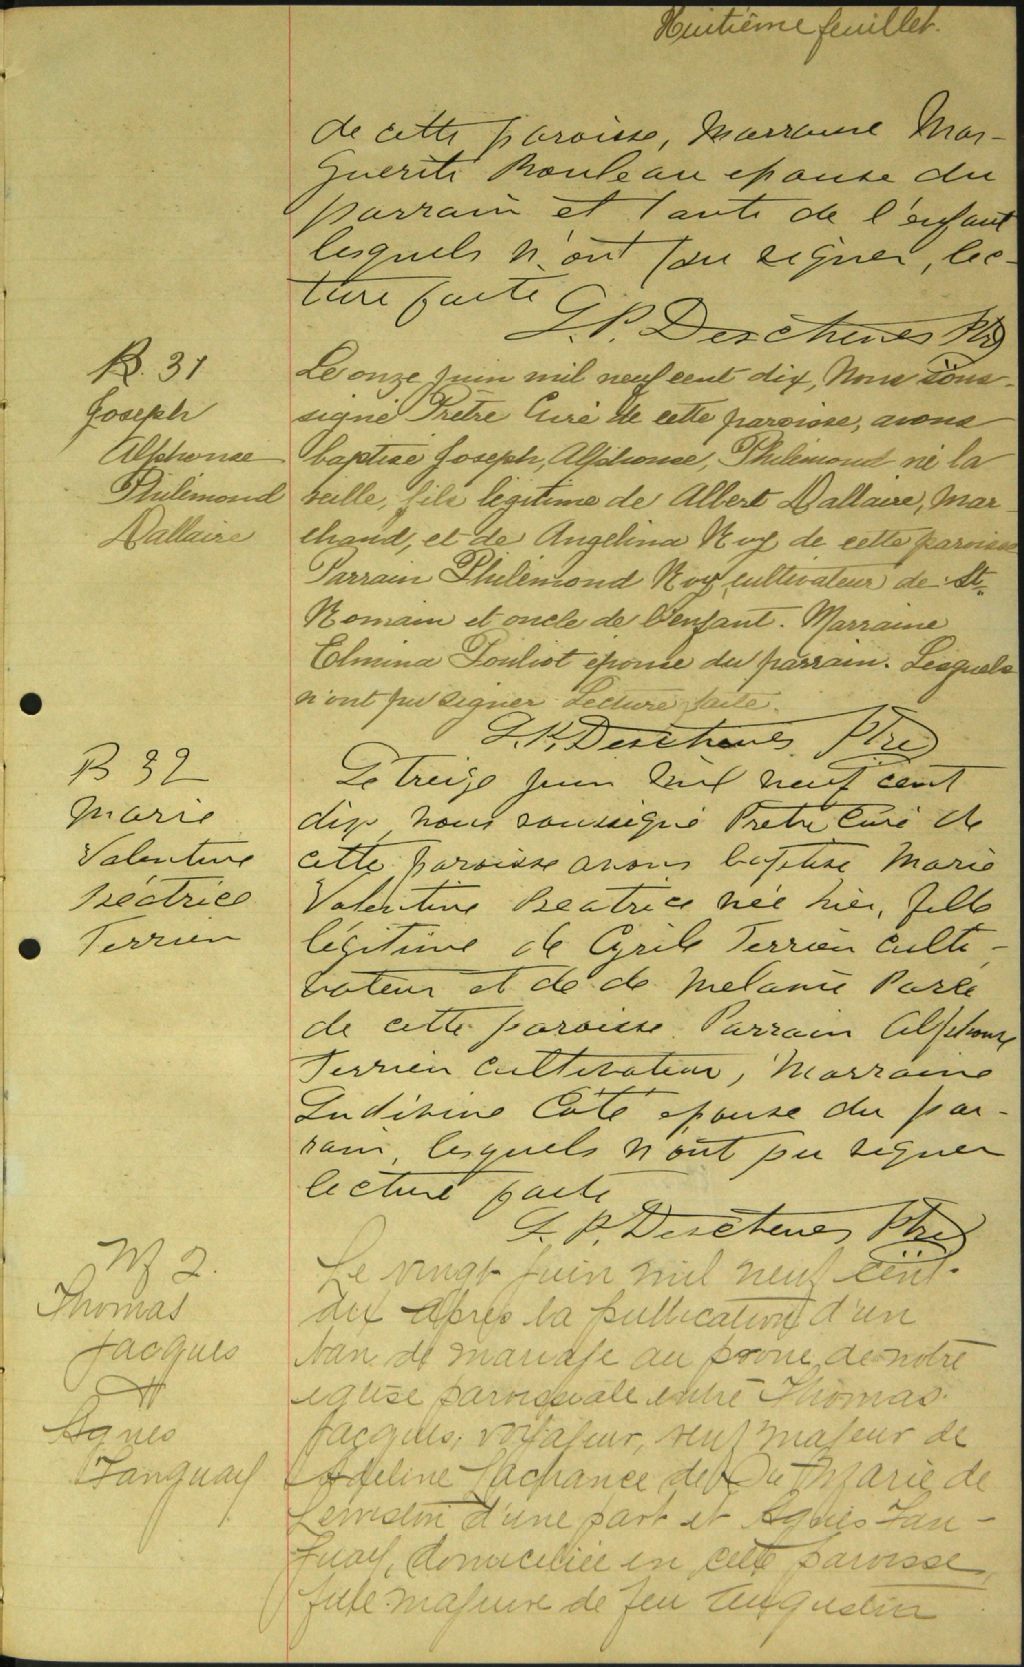 Huitième feuillet.
de cette paroisse, Marraine Mar-
guerite Rouleau epouse du
parrain et tante de l'enfant
lesquels n'ont pu signer, lec-
ture faite
J. P. Deschenes Ptre
B. 31
Joseph
Alphonse
Philémond
Dallaire
Le onze juin mil neuf cent dix, Nous sous-
signé Prêtre Curé de cette paroisse, avons
baptisé Joseph, Alphonse, Philémond né la
veille, fils légitime de Albert Dallaire, Mar-
chand, et de Angelina Roy de cette paroisse
Parrain Philémond Roy, cultivateur de St.
Romain et oncle de l'enfant. Marraine
Elmina Pouliot épouse du parrain. Lesquels
n'ont pu signer Lecture faite.
J. P. Deschenes Ptre
B 32
Marie
Valentine
Béatrice
Terrien
Le treize juin mil neuf cent
dix, nous soussigné Pretre Curé de
cette paroisse avons baptisé Marie
Valentine Beatrice née hier, fille
légitime de Cyrile Terrien culti-
vateur et de de Melanie Paré
de cette paroisse Parrain Alphonse
Terrien cultivateur, Marraine
Ludivine Coté epouse du par-
rain, lesquels n'ont pu signer
lecture faite
J. P. Deschenes Ptre
M 2.
Thomas
Jacques
&
Agnes
Tanguay
Le vingt juin mil neuf cent
dix après la publication d'un
ban de mariage au prone de notre
eglise paroissiale entre Thomas
Jacques, voyageur, veuf majeur de
Adeline Lachance de Ste Marie de
d'une part et Agnès Tan-
guay, domiciliée en cette paroisse,
fille majeure de feu Augustin